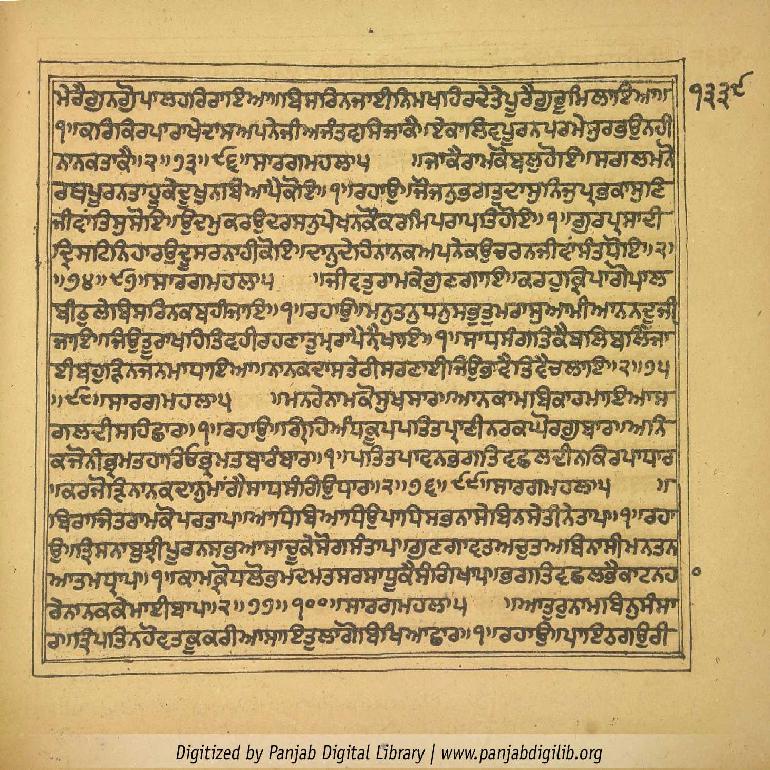 ੧੩੩੯
ਮੇਰੈਗੁਨਗੋਪਾਲਹਰਿਰਾਇਆ॥ਬਿਸਰਿਨਜਾਈਨਿਮਖਹਿਰਦੇਤੇਪੂਰੈਗੁਰੂਮਿਲਾਇਆ॥
੧॥ਕਰਿਕਿਰਪਾਰਾਖੇਦਾਸਅਪਨੇਜੀਅਜੰਤਵਸਿਜਾਕੈ॥ਏਕਾਲਿਵਪੂਰਨਪਰਮੇਸੁਰਭਉਨਹੀ
ਨਾਨਕਤਾਕੈ॥੨॥੭੩॥੯੬॥ਸਾਰਗਮਹਲਾ੫ ॥ਜਾਕੈਰਾਮਕੋਬਲੁਹੋਇ॥ਸਗਲਮਨੋ
ਰਥਪੂਰਨਤਾਹੂਕੇਦੂਖੁਨਬਿਆਪੈਕੋਇ॥੧॥ਰਹਾਉ॥ਜੋਜਨੁਭਗਤੁਦਾਸੁਨਿਜੁਪ੍ਰਭਕਾਸੁਣਿ
ਜੀਵਾਂਤਿਸੁਸੋਇ॥ਉਦਮੁਕਰਉਦਰਸਨੁਪੇਖਨਕੌਕਰਮਿਪਰਾਪਤਿਹੋਇ॥੧॥ਗੁਰਪ੍ਰਸਾਦੀ
ਦ੍ਰਿਸਟਿਨਿਹਾਰਉਦੂਸਰਨਾਹੀਕੋਇ॥ਦਾਨੁਦੇਹਿਨਾਨਕਅਪਨੇਕਉਚਰਨਜੀਵਾਂਸੰਤਧੋਇ॥੨॥
॥੭੪॥੯੭॥ਸਾਰਗਮਹਲਾ੫ ॥ਜੀਵਤੁਰਾਮਕੇਗੁਣਗਾਇ॥ਕਰਹੁਕ੍ਰਿਪਾਗੋਪਾਲ
ਬੀਠੁਲੇਬਿਸਰਿਨਕਬਹੀਜਾਇ॥੧॥ਰਹਾਉ॥ਮਨੁਤਨੁਧਨੁਸਭੁਤੁਮਰਾਸੁਆਮੀਆਨਨਦੂਜੀ
ਜਾਇ॥ਜਿਉਤੂਰਾਖਹਿਤਿਵਹੀਰਹਣਾਤੁਮ੍ਰਾਪੈਨੈਖਾਇ॥੧॥ਸਾਧਸੰਗਤਿਕੈਬਲਿਬਲਿਜਾ
ਈਬਹੁੜਿਨਜਨਮਾਧਾਇਆ॥ਨਾਨਕਦਾਸਤੇਰੀਸਰਣਾਈਜਿਉਭਾਵੈਤਿਵੈਚਲਾਇ॥੨॥੭੫
॥੯੮॥ਸਾਰਗਮਹਲਾ੫ ॥ਮਨਰੇਨਾਮਕੋਸੁਖਸਾਰ॥ਆਨਕਾਮਬਿਕਾਰਮਾਇਆਸ
ਗਲਦੀਸਹਿਛਾਰ॥੧॥ਰਹਾਉ॥ਗ੍ਰਿਹਿਅੰਧਕੂਪਪਤਿਤਪ੍ਰਾਣੀਨਰਕਘੋਰਗੁਬਾਰ॥ਅਨਿ
ਕਜੋਨੀਭ੍ਰਮਤਹਾਰਿਓਭ੍ਰਮਤਬਾਰੰਬਾਰ॥੧॥ਪਤਿਤਪਾਵਨਭਗਤਿਵਛਲਦੀਨਕਿਰਪਾਧਾਰ
॥ਕਰਜੋੜਿਨਾਨਕਦਾਨੁਮਾਂਗੈਸਾਧਸੰਗਿਉਧਾਰ॥੨॥੭੬॥੯੯॥ਸਾਰਗਮਹਲਾ੫ ॥
ਬਿਰਾਜਿਤਰਾਮਕੋਪਰਤਾਪ॥ਆਧਿਬਿਆਧਿਉਪਾਧਿਸਭਨਾਸੇਬਿਨਸੇਤੀਨੇਤਾਪ॥੧॥ਰਹਾ
ਉ॥ਤ੍ਰਿਸਨਾਬੁਝੀਪੂਰਨਸਭਆਸਾਚੂਕੇਸੋਗਸੰਤਾਪ॥ਗੁਣਗਾਵਤਅਚੁਤਅਬਿਨਾਸੀਮਨਤਨ
ਆਤਮਧ੍ਰਾਪ॥੧॥ਕਾਮਕ੍ਰੋਧਲੋਭਮਦਮਤਸਰਸਾਧੂਕੈਸੰਗਿਖਾਪ॥ਭਗਤਿਵਛਲਭੈਕਾਟਨਹ
ਰੇਨਾਨਕਕੇਮਾਈਬਾਪ॥੨॥੭੭॥੧੦੦॥ਸਾਰਗਮਹਲਾ੫ ॥ਆਤੁਰੁਨਾਮਬਿਨੁਸੰਸਾ
ਰ॥ਤ੍ਰਿਪਤਿਨਹੋਵਤਕੂਕਰੀਆਸਾਇਤੁਲਾਗੋਬਿਖਿਆਛਾਰ॥੧॥ਰਹਾਉ॥ਪਾਇਠਗਉਰੀ
Digitized by Panjab Digital Library | www.panjabdigilib.org